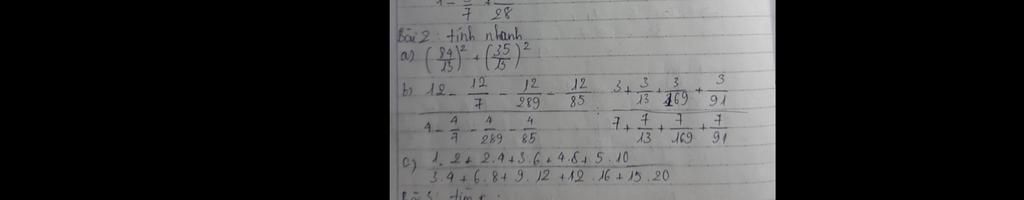 7 28
Bài 2: tính nhanh
a) (84/13)² + (35/15)²
b) 12 - 12/7 - 12/289 - 12/85 / 4 - 4/7 - 4/289 - 4/85 : 3 + 3/13 + 3/169 + 3/91 / 7 + 7/13 + 7/169 + 7/91
c) 1.2 + 2.4 + 3.6 + 4.8 + 5.10 / 3.4 + 6.8 + 9.12 + 12.16 + 15.20